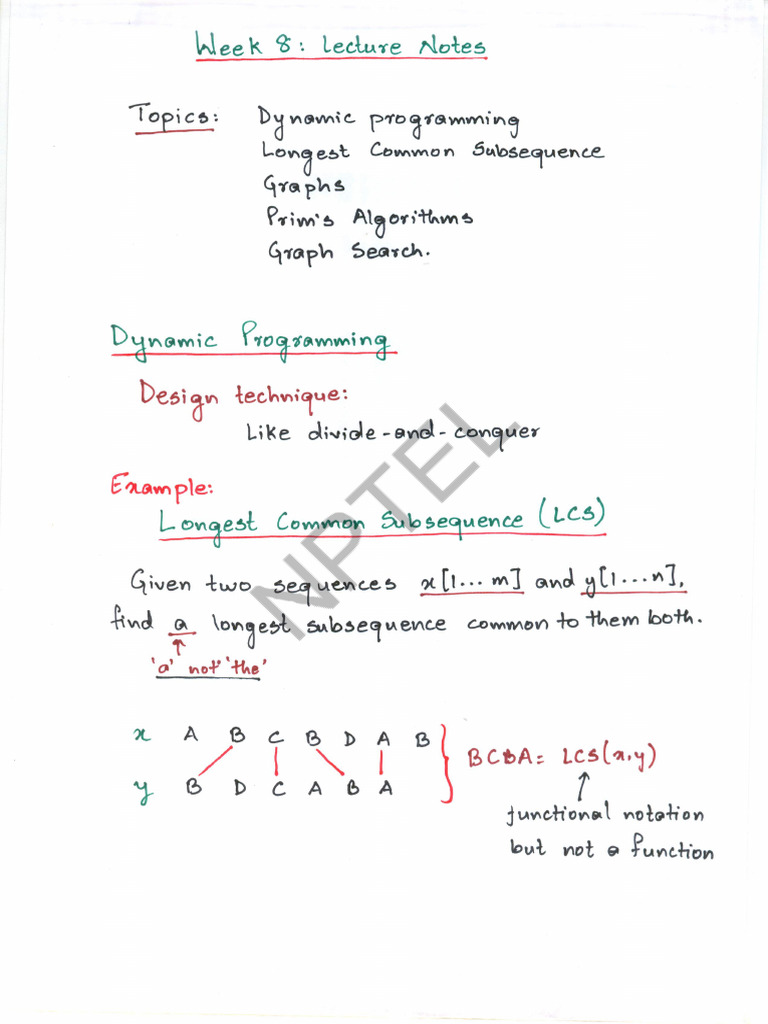 Week 8: Lecture Notes
Topics: Dynamic programming
Longest Common Subsequence
Graphs
Prim's Algorithms
Graph Search.
Dynamic Programming
Design technique:
Like divide-and-conquer
Example:
Longest Common Subsequence (LCS)
Given two sequences x[1...m] and y[1...n],
find a longest subsequence common to them both.
'a' not 'the'
x A B C B D A B
BCBA = LCS(x,y)
y B D C A B A
functional notation
but not a function
NPTEL